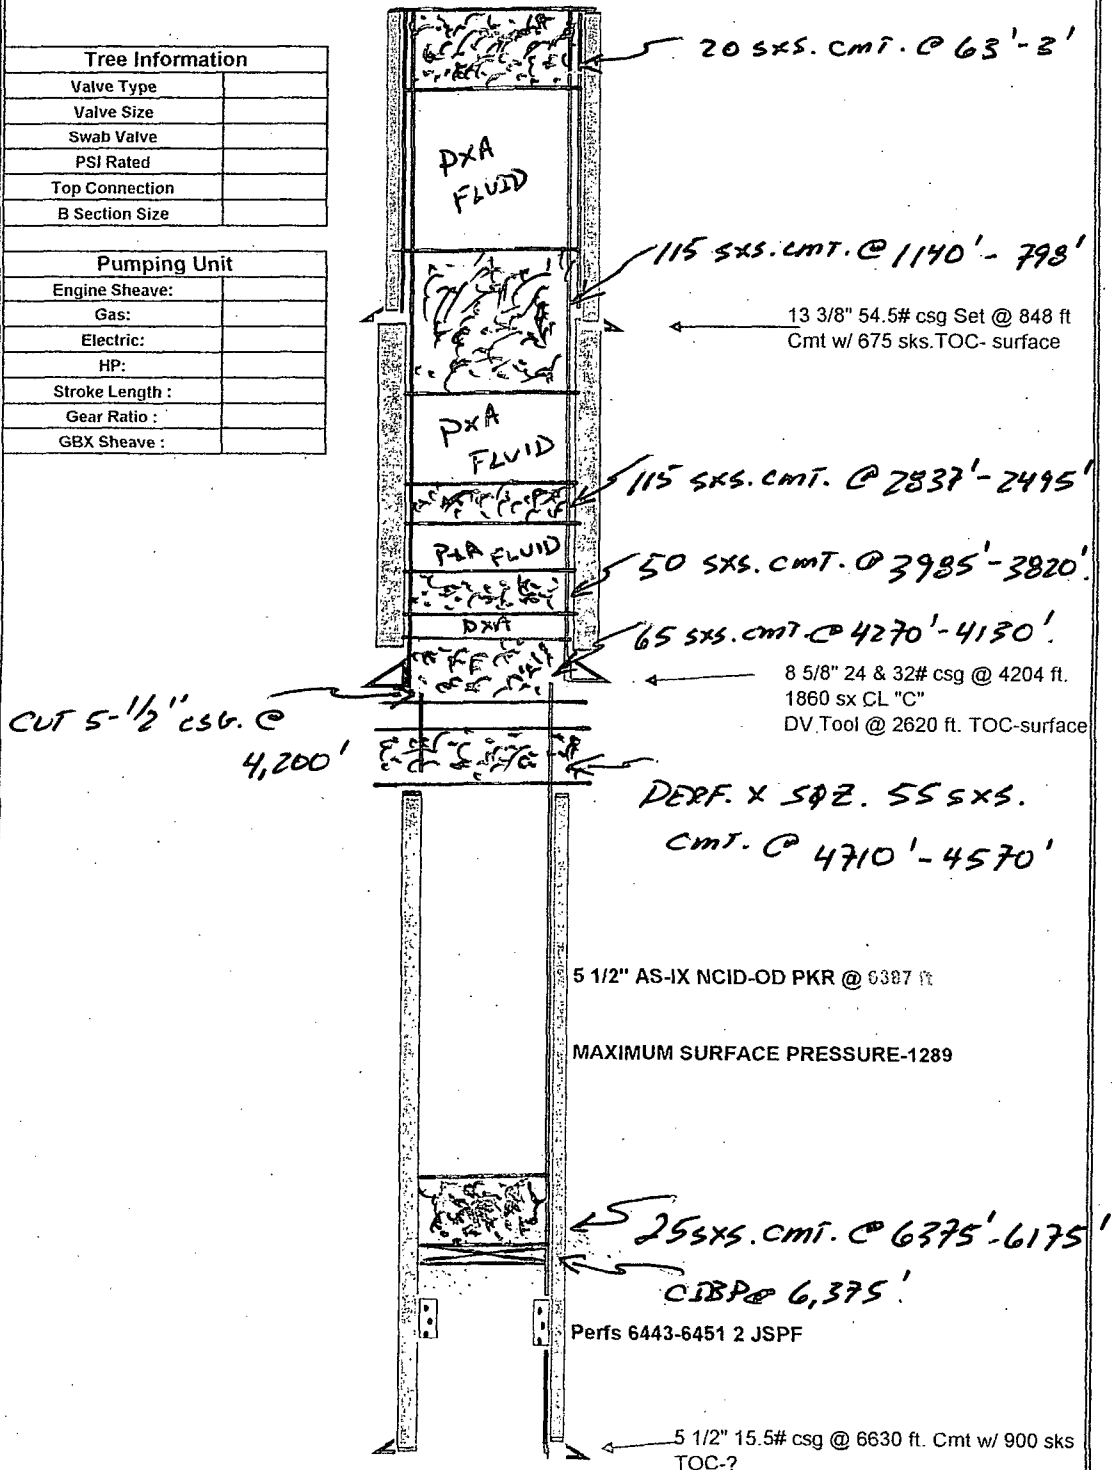 Tree Information
Valve Type
Valve Size
Swab Valve
PSI Rated
Top Connection
B Section Size
Pumping Unit
Engine Sheave:
Gas:
Electric:
HP:
Stroke Length :
Gear Ratio :
GBX Sheave :
20 SXS. CMT. @ 63'-3'
PXA
FLUID
115 SXS. CMT. @ 1140'-798'
13 3/8" 54.5# csg Set @ 848 ft
Cmt w/ 675 sks.TOC- surface
PXA
FLUID
115 SXS. CMT. @ 2837'-2495'
P&A FLUID
50 SXS. CMT. @ 3985'-3820'.
PXA
65 SXS. CMT @ 4270'-4130'.
8 5/8" 24 & 32# csg @ 4204 ft.
1860 sx CL "C"
DV Tool @ 2620 ft. TOC-surface
CUT 5-1/2" CSG. @
4,200'
PERF. X SQZ. 55 SXS.
CMT. @ 4710'-4570'
5 1/2" AS-IX NCID-OD PKR @ 6387 ft
MAXIMUM SURFACE PRESSURE-1289
25 SXS. CMT. @ 6375'-6175'
CIBP @ 6,375'.
Perfs 6443-6451 2 JSPF
5 1/2" 15.5# csg @ 6630 ft. Cmt w/ 900 sks
TOC-?